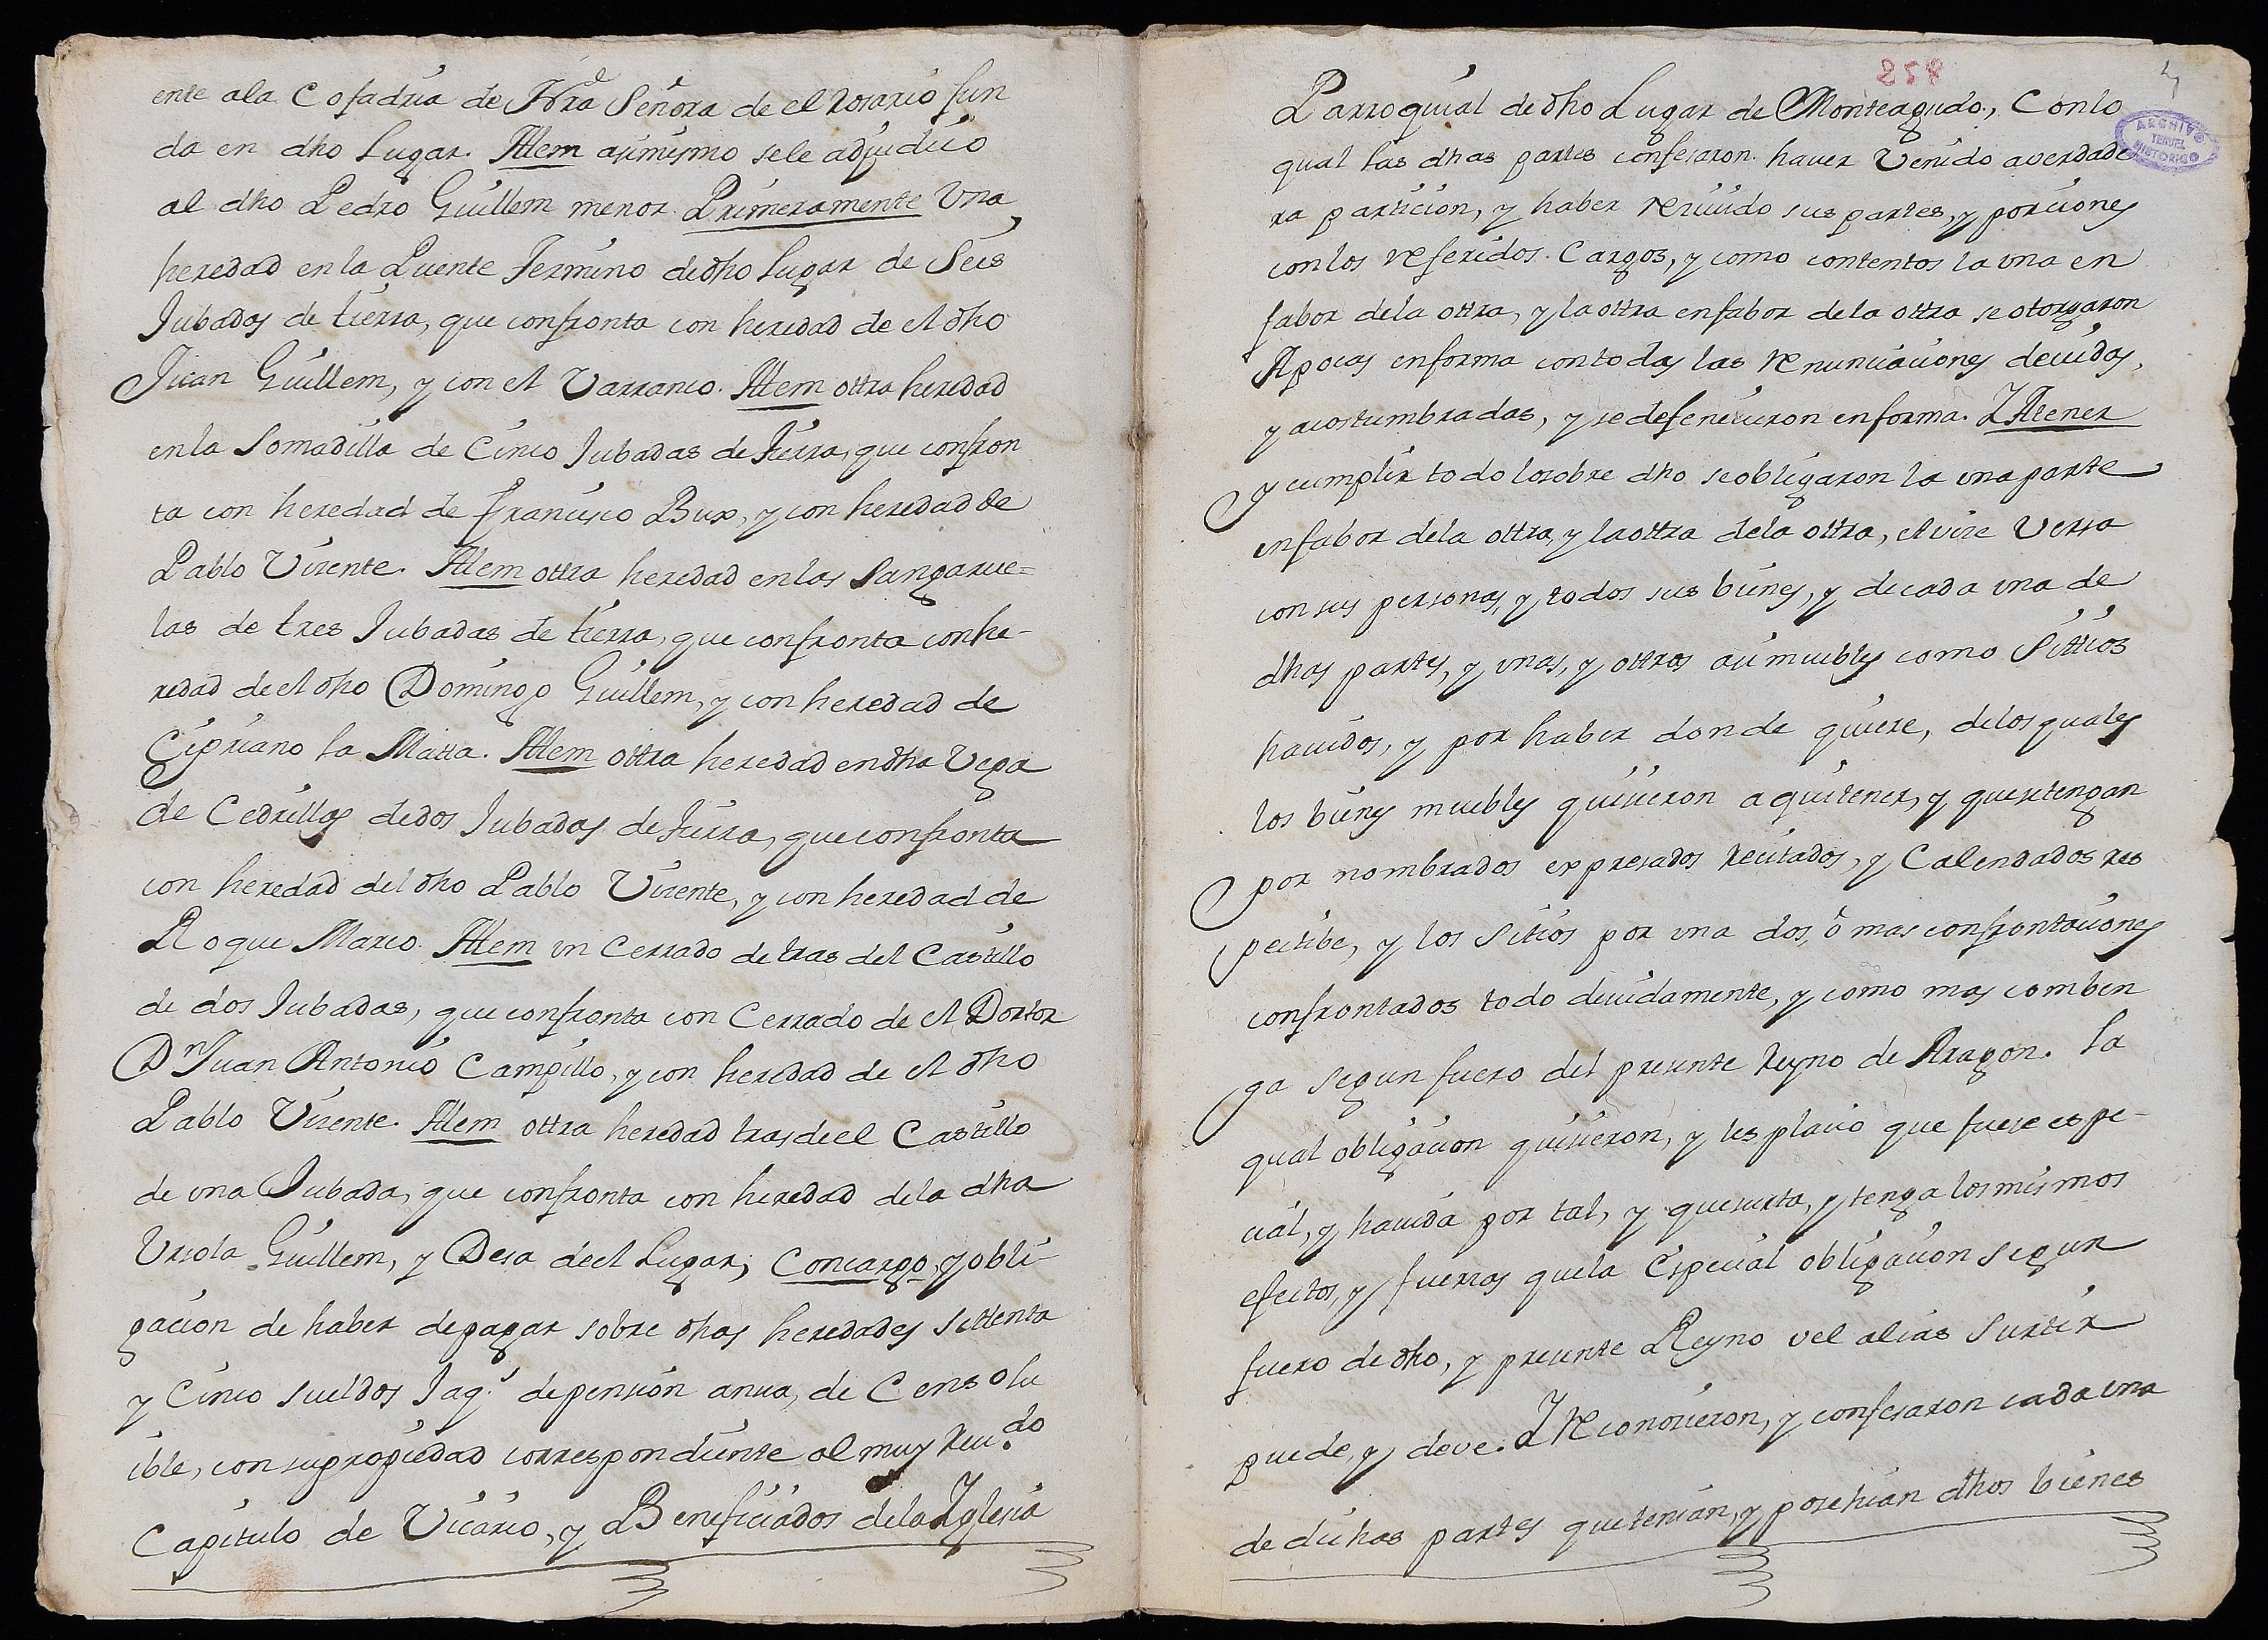 ente ala Cofadria de Nra Señora de el Rosario fun
da en dho Lugar. Ittem asimismo sele adjudico
al dho Pedro Guillem menor. Primeramente Una
heredad en la Puente Termino de dho Lugar de Seis
Jubadas de tierra, que confronta con heredad de el dho
Juan Guillem, y con el Varranco. Ittem ottra heredad
en la Somadilla de Cinco Jubadas de Tierra, que confron
ta con heredad de Francisco Bux, y con heredad de
Pablo Vicente. Ittem ottra heredad en las Sangarue=
las de tres Jubadas de tierra, que confronta con he-
redad de el dho Domingo Guillem, y con heredad de
Cipriano la Matta. Ittem ottra heredad en dha Vega
de Cedrillas de dos Jubadas de Tierra, que confronta
con heredad del dho Pablo Vicente, y con heredad de
Roque Marco. Ittem un Cerrado detras del Castillo
de dos Jubadas, que confronta con Cerrado de el Dortor
Dn Juan Antonio Campillo, y con heredad de el dho
Pablo Vicente. Ittem ottra heredad tras de el Castillo
de una Jubada, que confronta con heredad dela dha
Ursola Guillem, y Desa de el Lugar; Con cargo, y obli-
gacion de haber de pagar sobre dhas heredades Settenta
y Cinco sueldos Jaq.s de pension anua, de Censo lu
ible, con su propiedad correspondiente al muy Reu.do
Capitulo de Vicario, y Beneficiados dela Yglesia
258
4
ARCHIVO
HISTORICO
TERUEL
Parroquial de dho Lugar de Monteagudo, Con lo
qual las dhas partes confesaron haver Venido a verdade
ra particion, y haber recivido sus partes, y porciones
con los referidos Cargos, y como contentos la una en
fabor dela ottra, y la ottra en fabor dela ottra se otorgaron
Apocas en forma con todas las renunciaciones devidas,
y acostumbradas, y se defenecieron en forma. Y Atener
y cumplir todo lo sobre dho se obligaron la una parte
en fabor dela ottra, y la ottra dela ottra, et vice Versa
con sus personas, y todos sus bienes, y de cada una de
dhas partes, y unas, y ottros asi muebles como Sittios
havidos, y por haber donde quiere, delos quales
los bienes muebles quisieron aqui tener, y que se tengan
por nombrados expresados recitados, y Calendados res
pectibe, y los Sitios por una dos, ô mas confrontaciones
confrontados todo devidamente, y como mas comben
ga segun fuero del presente Reyno de Aragon. La
qual obligacion quisieron, y les placio que fuese espe-
cial, y havida por tal, y que surta, y tenga los mismos
efectos, y fuerzas que la Especial obligacion segun
fuero de dho, y presente Reyno vel alias Surtir
puede, y deve. Y Reconocieron, y confesaron cada una
de dichas partes que tenian, y posehian dhos bienes